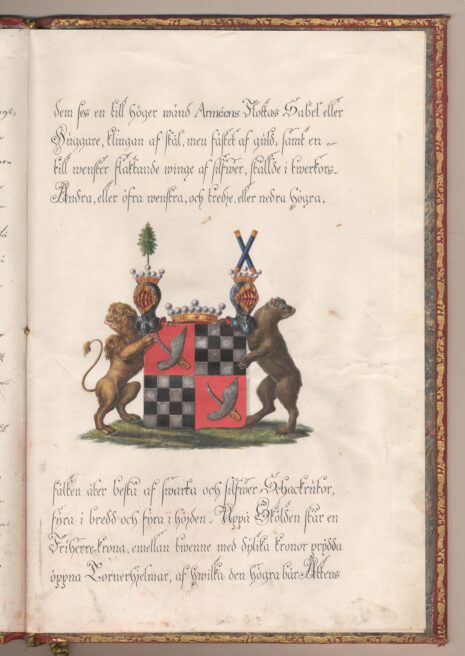 dem ses en till höger wänd Arméens Flottas Sabel eller
Huggare, klingan af stål, men fästet af guld, samt en
till wenster flaktande winge af silfwer, ställde i kwerkors.
Andra, eller öfra wenstra, och tredje, eller nedra högra,
fälten åter bestå af swarta och silfwer Schackrutor,
fyra i bredd och fyra i höjden. Uppå Skölden står en
Friherre-krona, emellan twenne med dylika kronor prydda
öppna Tornerhjelmar, af hwilka den högra bär Ättens